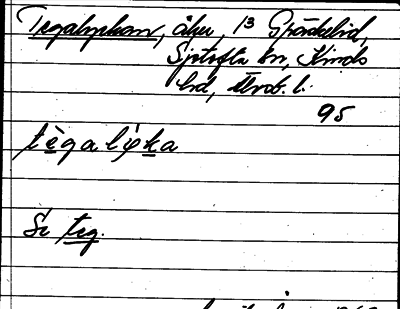 Tegalyckan, åker, 13 Spräckelid,
Sjötofta sn, Kinds
hd, Älvsb. l.
95
tègalỳka
Se teg.